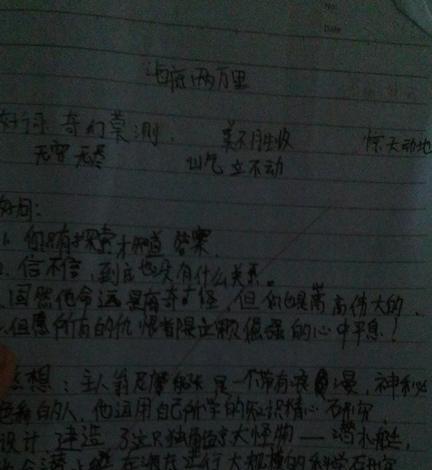 海底两万里
好词：奇幻莫测 美不胜收 惊天动地
无穷无尽 屹立不动
好句：
1. 你只有探索才知道答案。
2. 信不信，到底也没有什么关系。
固然他命运是奇怪，但他也是崇高伟大的。
但愿所有的仇恨都在这颗倔强的心中平息！
感想：主人翁尼摩船长是一个带有浪漫、神秘
色彩的人，他运用自己所学的知识精心
设计、建造了这只独角鲸大怪物——潜水艇，
在海底进行大规模的科学